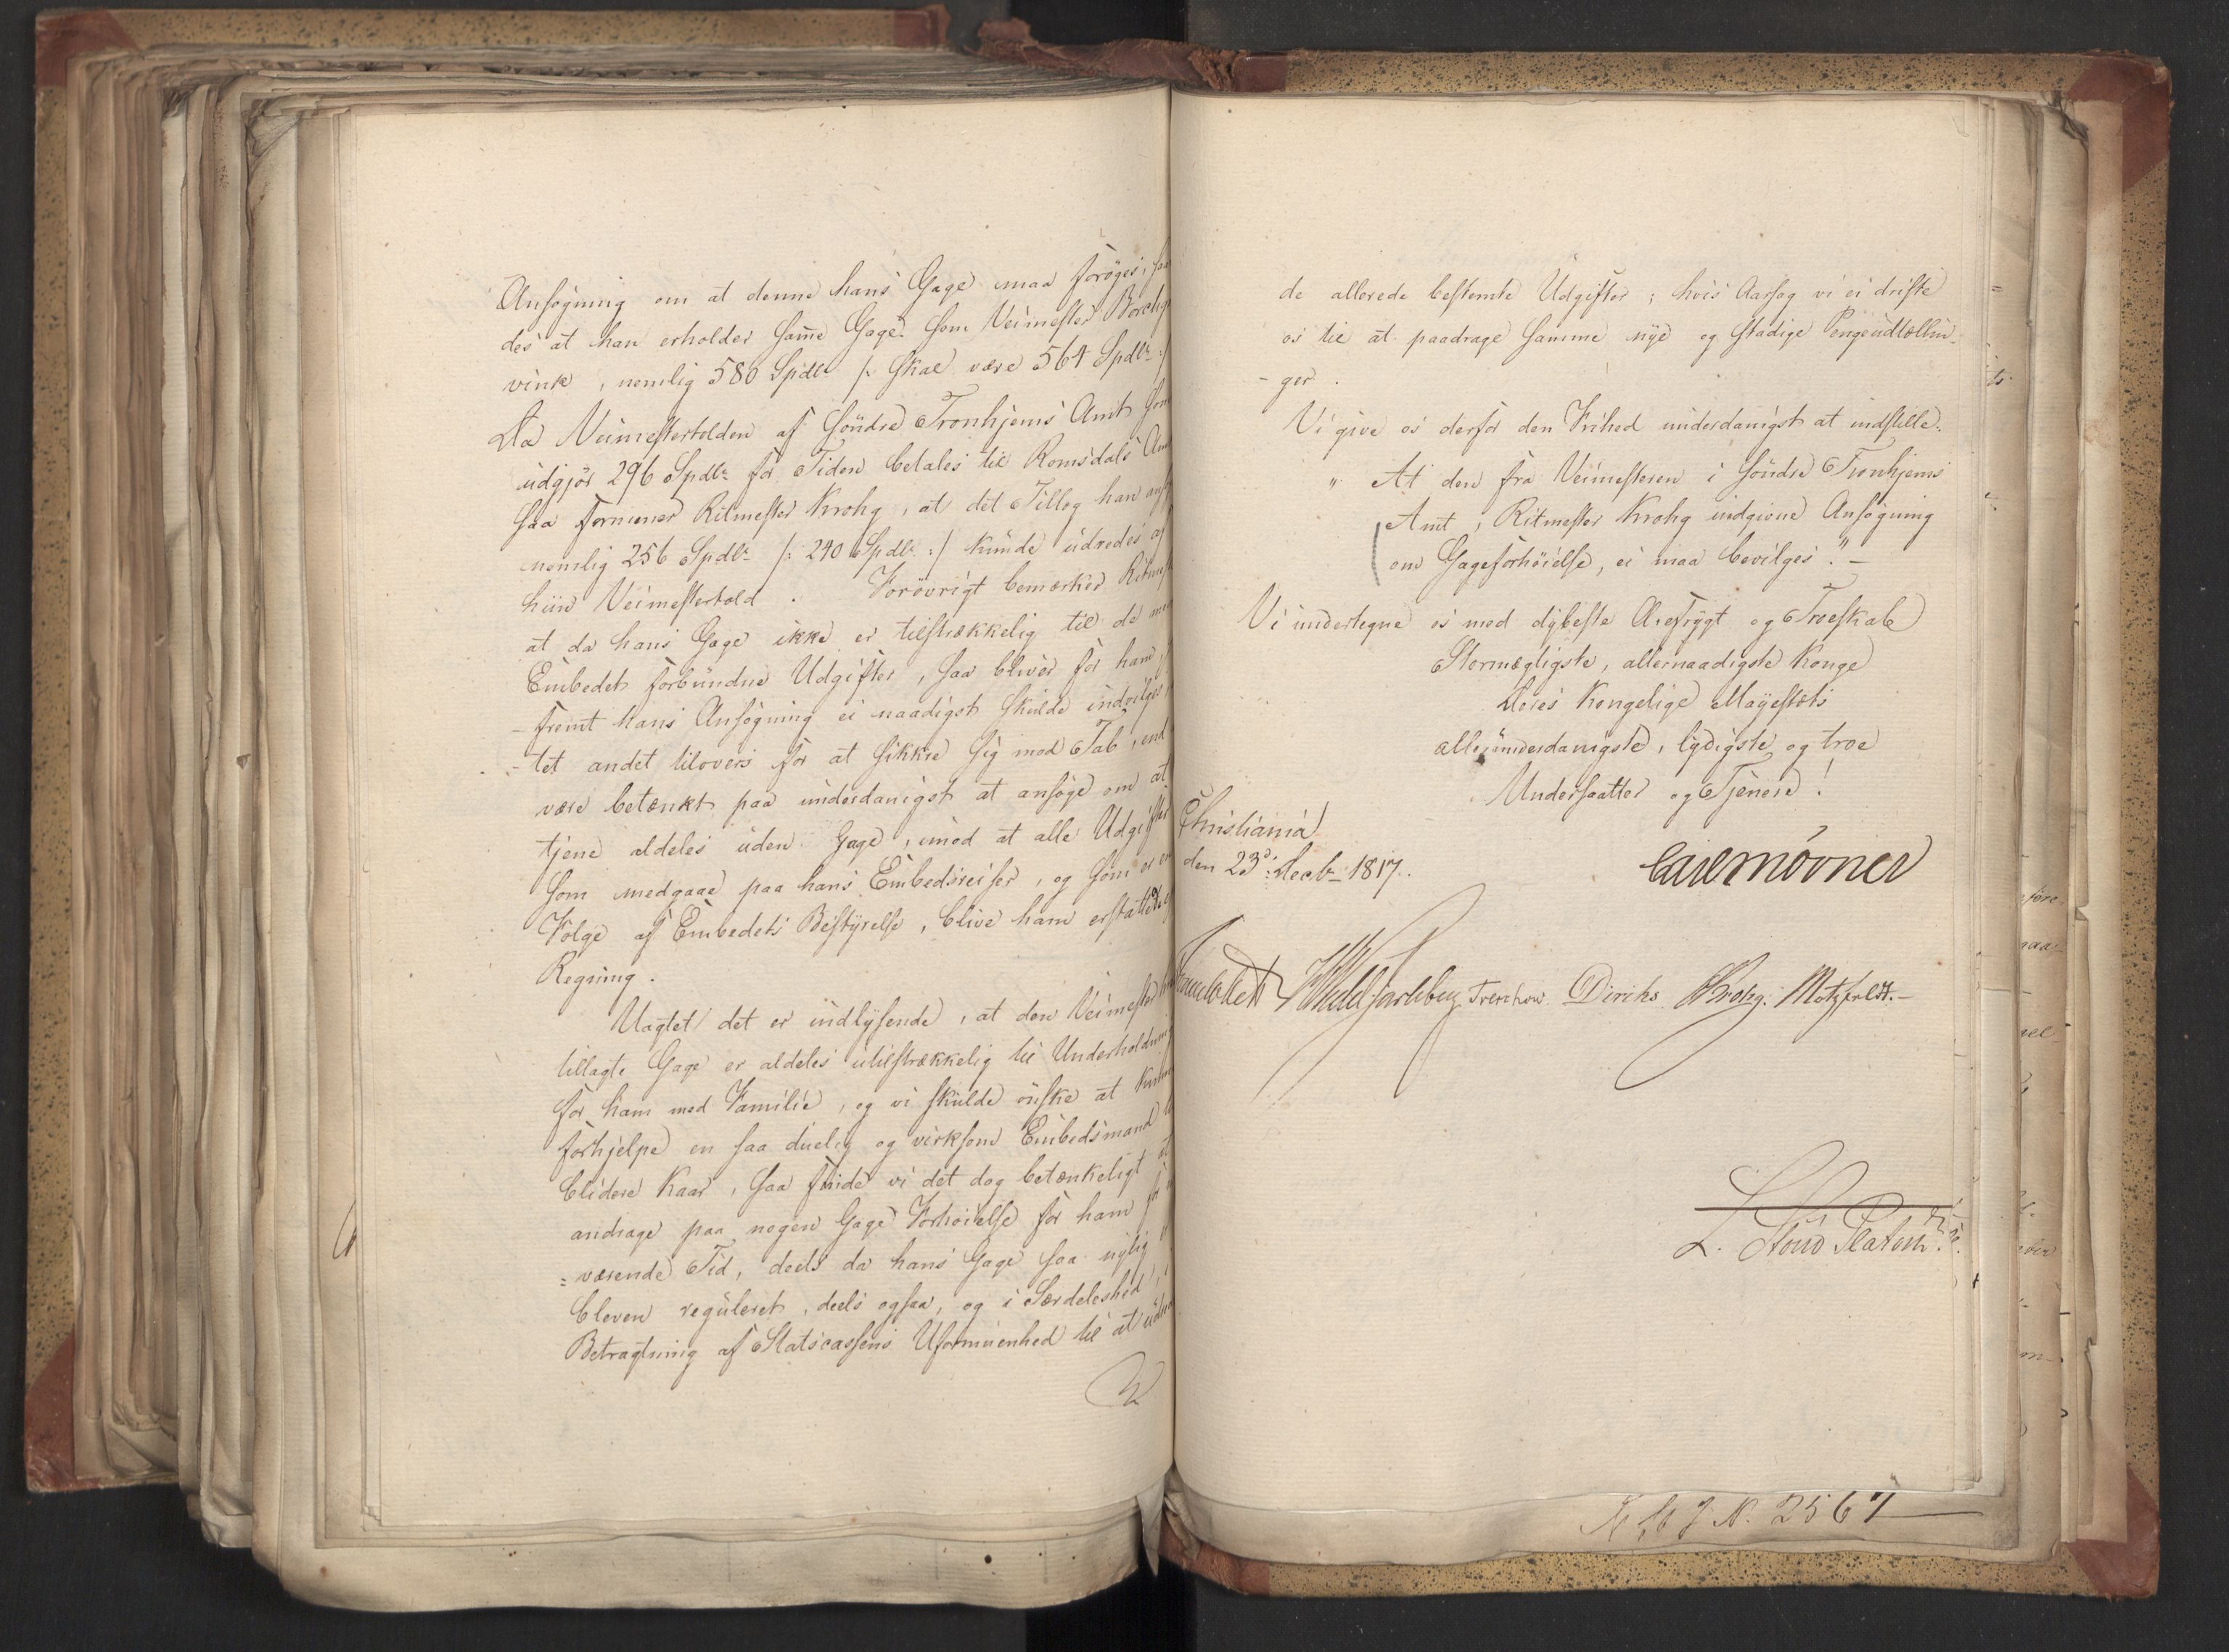 Ansøgning om at denne hans Gage maa forøges, saa
des at han erholder sam̄e Gage som Veimester Borchg
vink, nemlig 580 Spdlr /: skal være 564 Spdlr :/
Da Veimestertolden af søndre Tronhjems Amt som
udgjør 296 Spdlr for Tiden betales til Romsdals Am
saa formener Ritmester Krohg, at det Tillæg han
nemlig 256 Spdlr /: 240 Spdlr :/ kunde udredes af
hiin Veimestertold. Forøvrigt bemærker Ritmest
at da hans Gage ikke er tilstrækkelig til de med
Embedet forbundne Udgifter, saa bliver for ham,
-fremt hans Ansøgning ei naadigst skulde indvilges
-tet andet tilovers for at sikkre sig mod Tab, end
være betænkt paa underdanigst at ansøge om at
tjene aldeles uden Gage, imod at alle Udgifter
som medgaae paa hans Embedsreiser, og som er en
Følge af Embedets Bestyrelse, blive ham erstattede
Regning.
Uagtet det er indlysende, at den Veimester
tillagte Gage er aldeles utilstrækkelig til Underholdning
for ham med Familie, og vi skulde ønske at kunne
forhjelpe en saa duelig og virksom Embedsmand til
blidere Kaar, saa finde vi det dog betænkeligt at
andrage paa nogen Gage Forhøielse for ham for
=værende Tid, deels da hans Gage saa nylig
bleven reguleret, deels ogsaa, og i Særdeleshed, i
Betragtning af Statscassens Uformuenhed til at
de allerede bestemte Udgifter; hvis Aarsag vi ei driste
os til at paadrage samme nye og stadige Pengeudtællin-
-ger.
Vi give os derfor den Frihed underdanigst at indstille:
"At den fra Veimesteren i søndre Tronhjems
Amt, Ritmester Krohg indgivne Ansøgning
om Gageforhøielse, ei maa bevilges." –
Vi undertegne os med dybeste Ærefrygt og Troeskab
Stormægtigste, allernaadigste Konge
Deres Kongelige Mayestæts
allerunderdanigste, lydigste og troe
Undersaatter og Tjenere!
Christiania
den 23d: Decbr 1817.
Carl Mörner
Sommerhielm HWedelJarlsberg Treschow. Diriks Krohg. Motzfeldt. –
L. Stoud Platou.
N. 2567